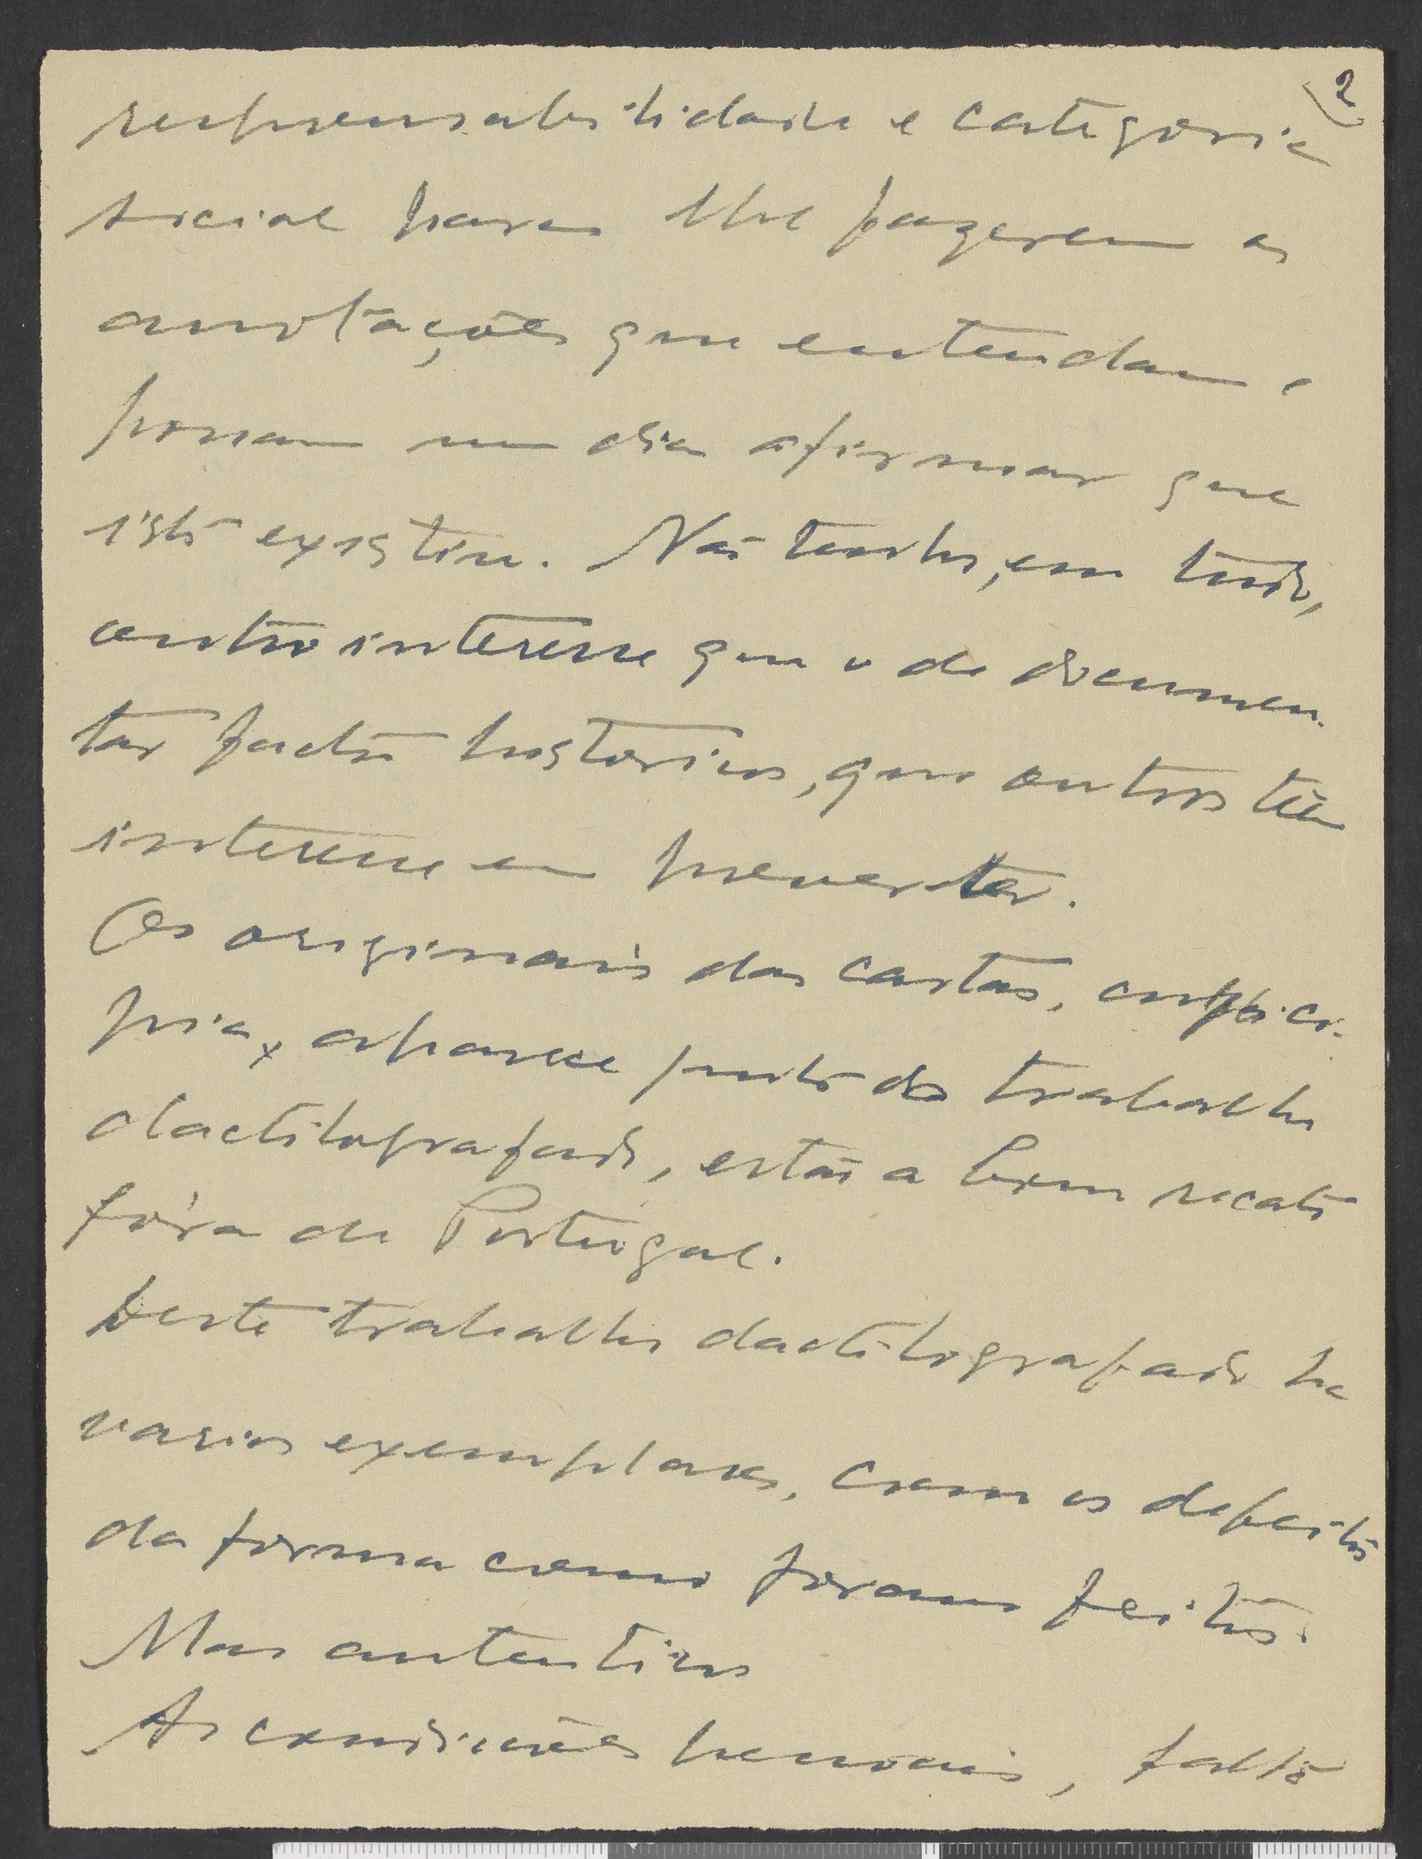 2
responsabilidade e categoria
social para lhe fazerem as
anotações que entendam e
possam um dia afirmar que
isto existiu. Não tenho, em tudo,
outro interesse que o de documen-
tar factos historicos, que outros têm
interesse em
Os originais das cartas, cuja co-
pia, aparece junto do trabalho
dactilografado, estão a bom recato
fóra de Portugal.
Deste trabalho dactilografado ha
varios exemplares, com os defeitos
da forma como foram feitos.
Mas autenticos
As condições pessoais, falto